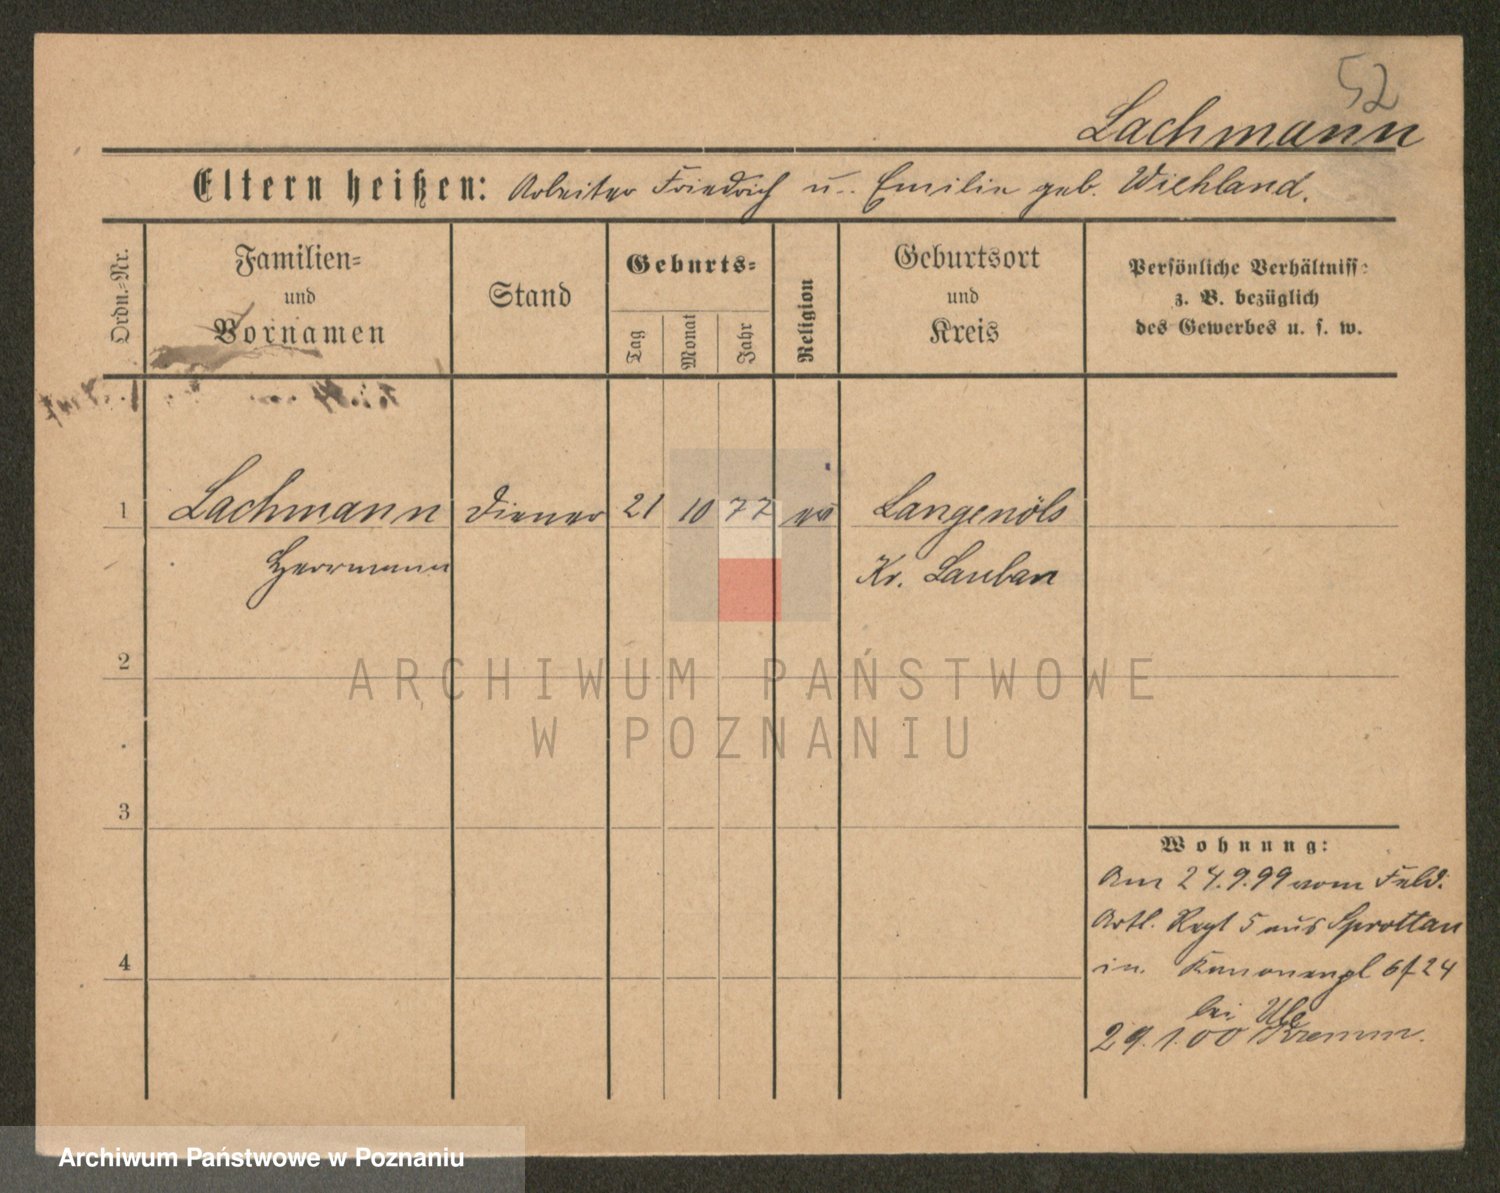 52
Lachmann
Eltern heißen: Arbeiter Friedrich u. Emilie geb. Wiehland.
Ordn.-Nr.
Familien-
und
Vornamen
Stand
Geburts-
Tag
Monat
Jahr
Religion
Geburtsort
und
Kreis
Persönliche Verhältnisse
z. B. bezüglich
des Gewerbes u. s. w.
1 Lachmann Diener 21 10 77 ev Langenöls
Herrmann Kr. Lauban
2
ARCHIWUM PAŃSTWOWE
W POZNANIU
3
4
Wohnung:
Am 24.9.99 vom Feld.
Artl. Regt 5 aus Sprottau
in Kanonenpl 6/24
bei
29.1.00
Archiwum Państwowe w Poznaniu